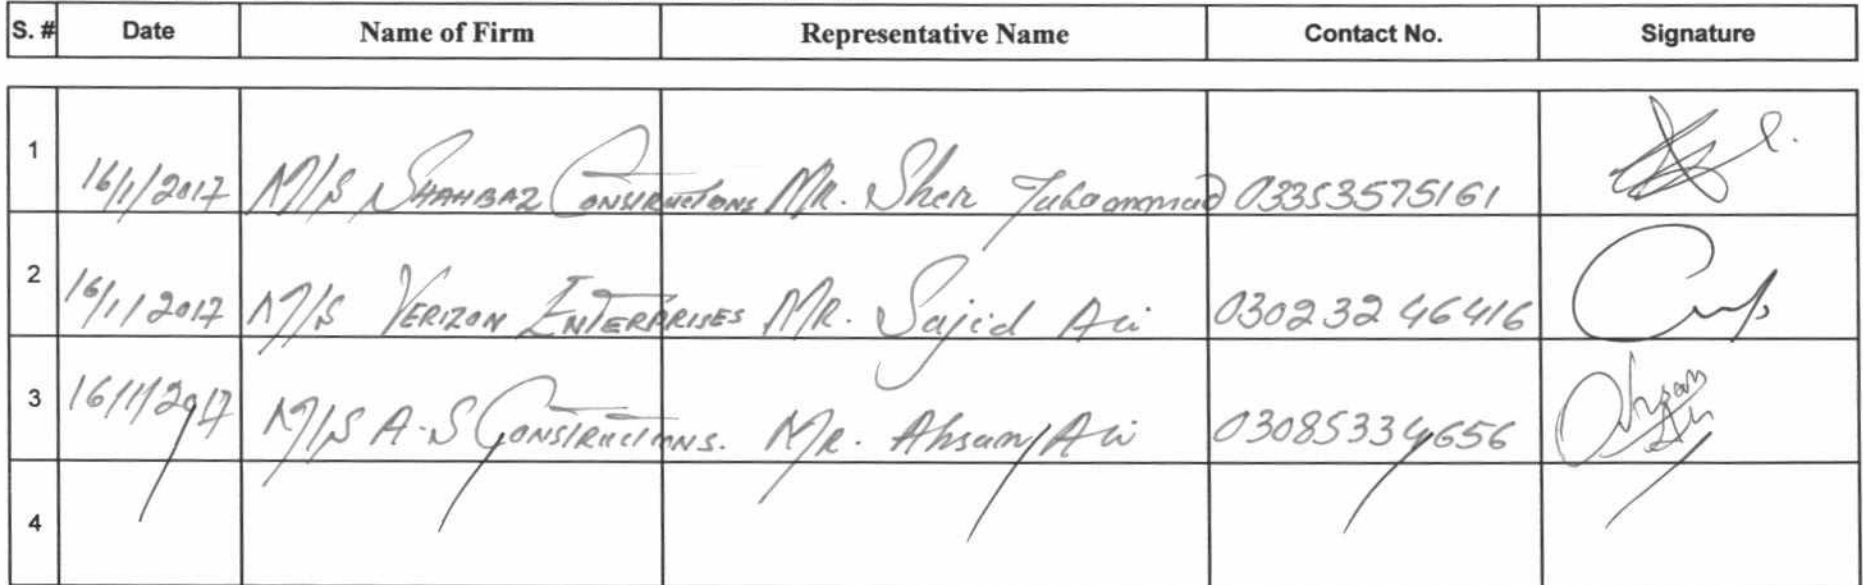 S. # Date Name of Firm Representative Name Contact No. Signature
1 16/1/2017 M/S SHAHBAZ CONSTRUCTIONS MR. Sher 03353575161
2 16/1/2017 M/S VERIZON ENTERPRISES MR. Sajid Ali 03023246416
3 16/1/2017 M/S A-S CONSTRUCTIONS. MR. Ahsan Ali 03085334656 Ahsan Ali
4